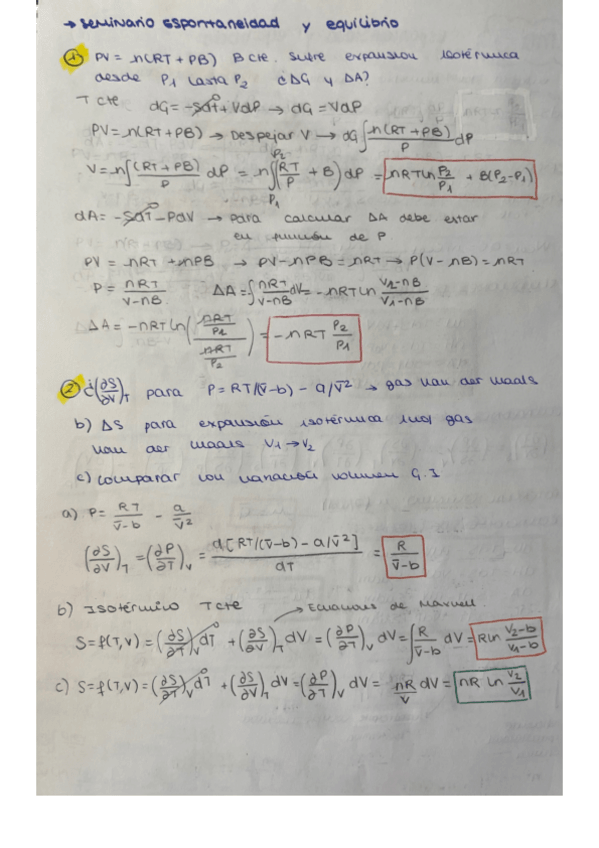 → seminario espontaneidad y equilibrio
① PV = n(RT + PB) B cte. Sufre expansión isotérmica
desde P1 hasta P2 ¿ΔG y ΔA?
T cte dG = -SdT + VdP → dG = VdP
PV = n(RT + PB) → Despejar V → dG ∫ n(RT + PB)/P dP
V = n∫ (RT + PB)/P dP = n∫P1P2 (RT/P + B) dP = nRT ln P2/P1 + B(P2-P1)
dA = -SdT - PdV → Para calcular ΔA debe estar
en función de P
PV = nRT + nPB → PV - nPB = nRT → P(V - nB) = nRT
P = nRT/V-nB. ΔA = ∫ nRT/V-nB dV = -nRT ln V2-nB/V1-nB
ΔA = -nRT ln( nRT/P1 / nRT/P2 ) = -nRT P2/P1
② ¿(∂S/∂V)T para P = RT/(V̄-b) - a/V̄² → gas van der waals
b) ΔS para expansión isotérmica 1 mol gas
van der waals V1 → V2
c) comparar con variación volumen G.I
a) P = RT/V̄-b - a/V̄²
(∂S/∂V)T = (∂P/∂T)V = d[RT/(V̄-b) - a/V̄²]/dT = R/V̄-b
b) Isotérmico T cte → Ecuaciones de Maxwell
S = f(T,V) = (∂S/∂T)V dT 0 + (∂S/∂V)T dV = (∂P/∂T)V dV = ∫ R/V̄-b dV = R ln V2-b/V1-b
c) S = f(T,V) = (∂S/∂T)V dT 0 + (∂S/∂V)T dV = (∂P/∂T)V dV = nR/V dV = nR ln V2/V1